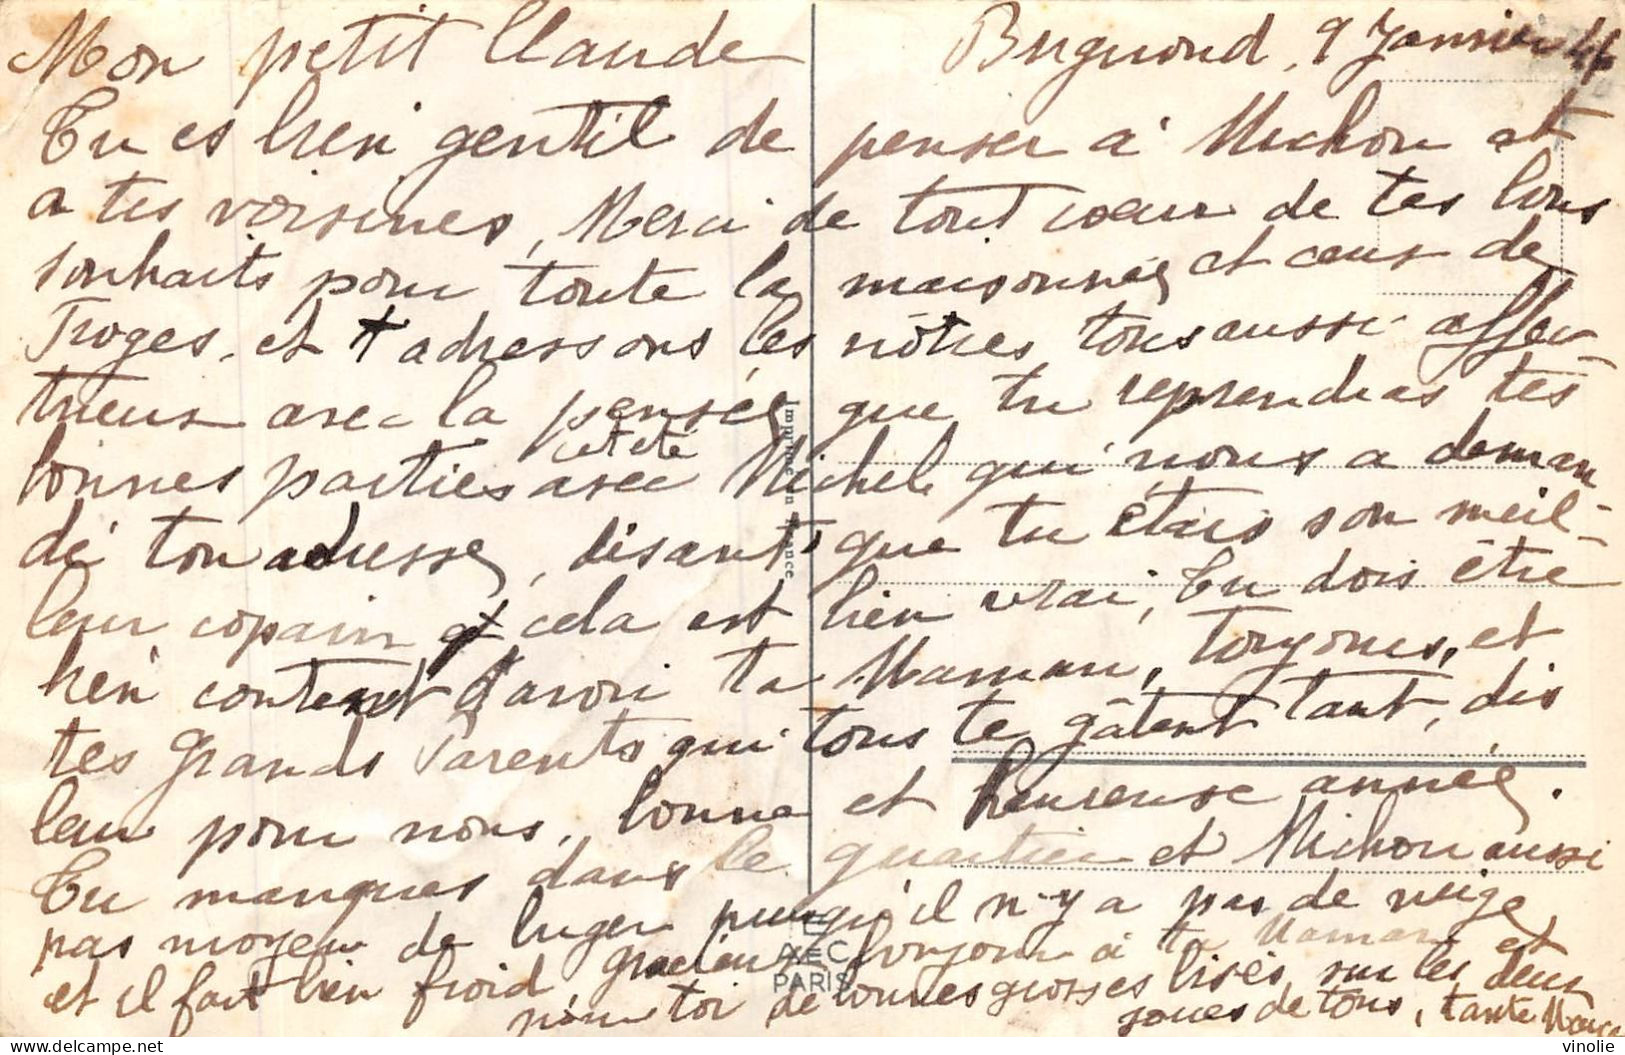 Mon petit Claude
9 Janvier 44
Tu es bien gentil de penser à Michou et
a tes voisines, Merci de tout cœur de tes bons
souhaits pour toute la maisonnée et ceux de
Troges, et t'adressons les nôtres tous aussi affec
tueux avec la pensée que tu reprendras tes
cet été
bonnes parties avec Michel qui nous a deman
dé ton adresse, disant que tu étais son meil-
leur copain et cela est bien vrai, Tu dois être
bien content d'avoir ta Maman, et
tes Grands Parents qui tous te gâtent tant, dis
leur pour nous, bonne et heureuse année.
Tu manques dans le quartier et Michou aussi
pas moyen de luger puisqu'il n'y a pas de neige
et il fait bien froid gracieux bonjour à ta Maman et
pour toi de bonnes grosses bises sur les deux
joues de tous, tante
Imprimé en France
AEC
PARIS
vinolie